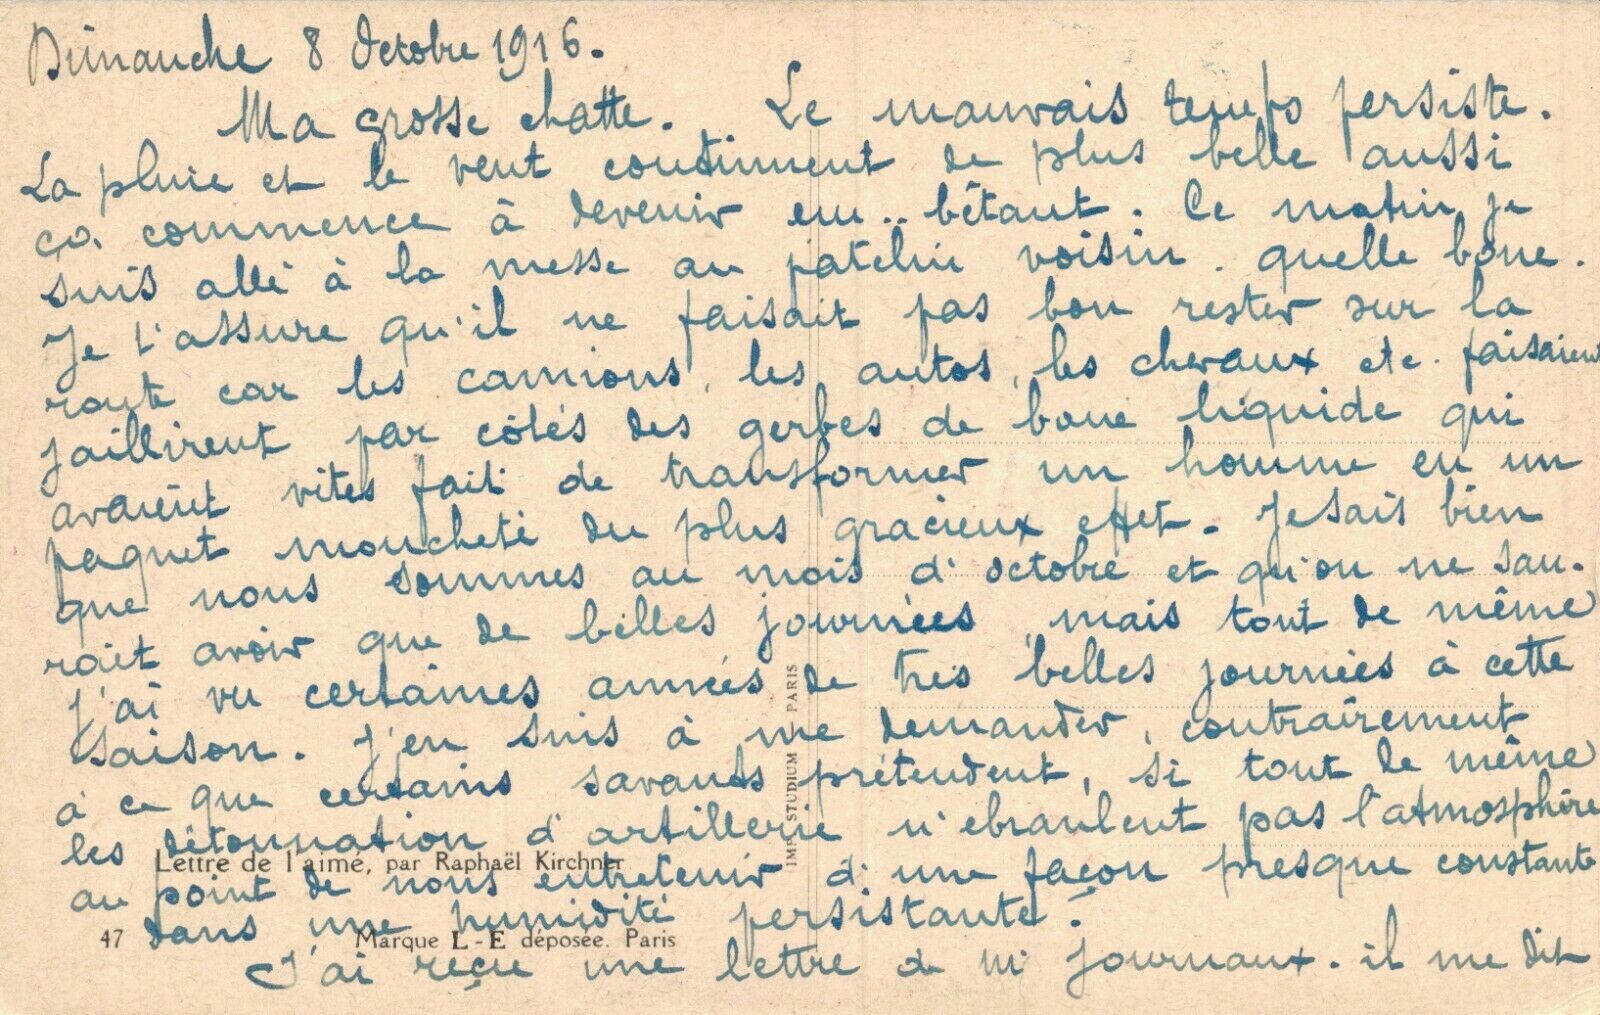 Dimanche 8 Octobre 1916.
Ma grosse chatte. Le mauvais temps persiste.
La pluie et le vent continnent de plus belle aussi
ça commence à devenir em..bêtant. Ce matin je
suis allé à la messe au patelin voisin. quelle boue.
Je t'assure qu'il ne faisait pas bon rester sur la
route car les camions, les autos, les chevaux etc. faisaient
jaillirent par côtés des gerbes de boue liquide qui
avaient vites fait de transformer un homme en un
paquet moucheté du plus gracieux effet. Je sais bien
que nous sommes au mois d'octobre et qu'on ne sau-
rait avoir que de belles journées, mais tout de même
j'ai vu certaines années de très belles journées à cette
saison. J'en suis à me demander, contrairement
à ce que certains savants prétendent, si tout de même
les détonnation d'artillerie n'ebranlent pas l'atmosphère
au point de nous entretenir d'une façon presque constante
dans une humidité persistante?
J'ai reçue une lettre de Mr Journaux. il me dit
Lettre de l'aimé, par Raphaël Kirchner
47 Marque L-E déposée. Paris
IMP. STUDIUM PARIS